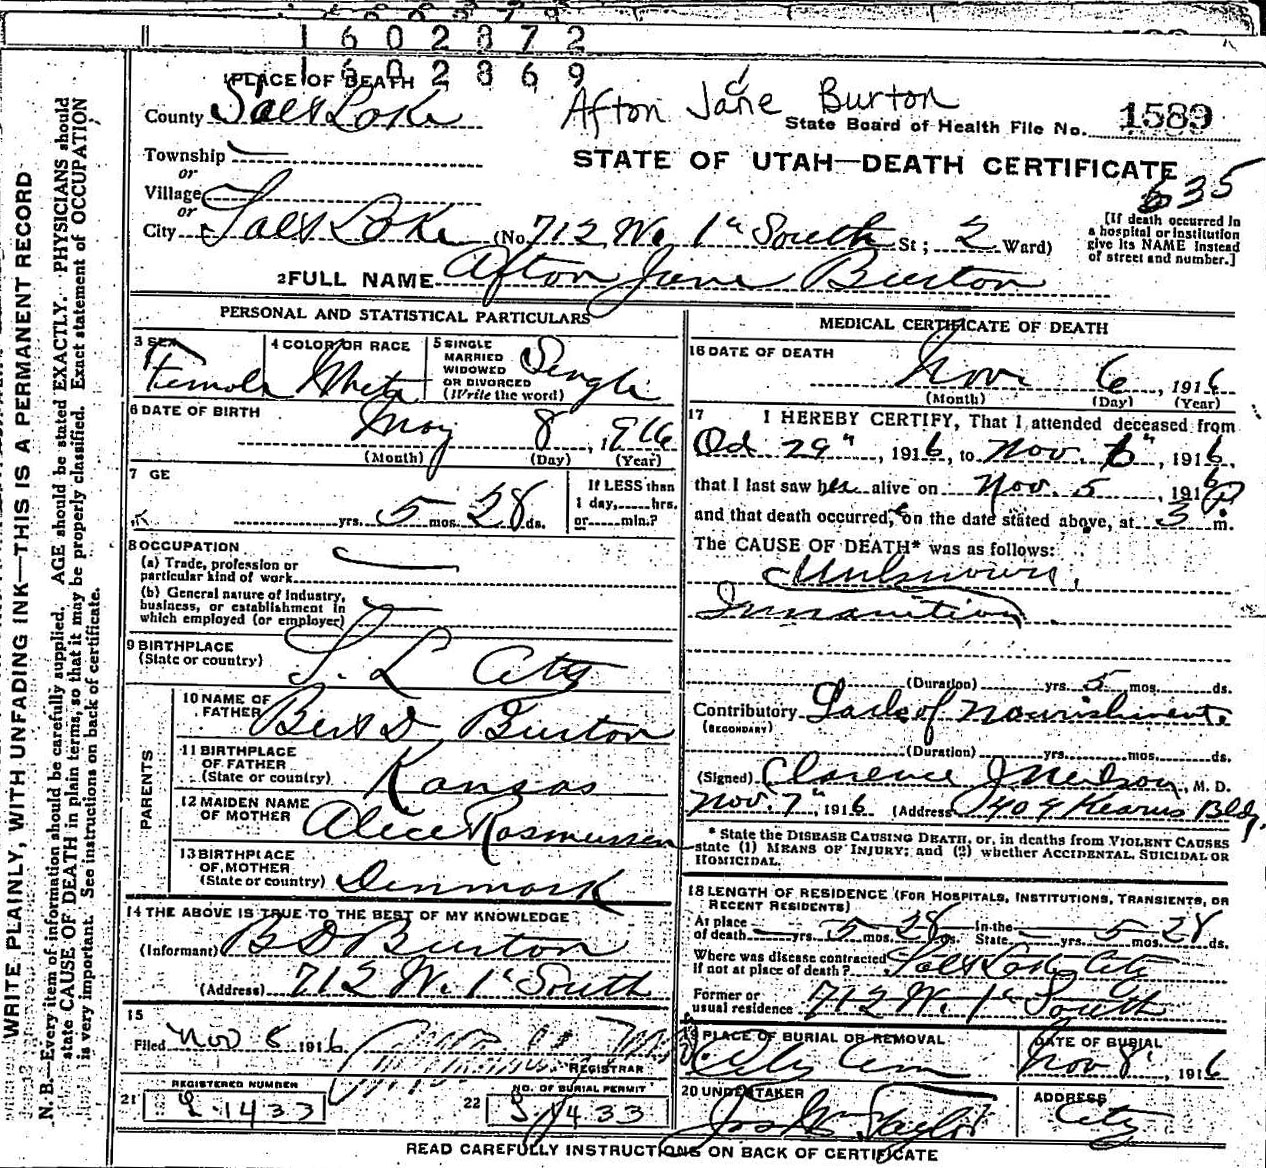 1602872
1602869
PLACE OF DEATH
Afton Jane Burton
County Salt Lake
State Board of Health File No. 1589
Township
or
STATE OF UTAH—DEATH CERTIFICATE
635
Village
or
City Salt Lake (No. 712 W. 1st South St; 2 Ward)
[If death occurred in a hospital or institution give its NAME instead of street and number.]
2 FULL NAME Afton Jane Burton
PERSONAL AND STATISTICAL PARTICULARS
3 SEX Female
4 COLOR OR RACE White
5 SINGLE MARRIED WIDOWED OR DIVORCED (Write the word) Single
6 DATE OF BIRTH May 8, 1916
(Month) (Day) (Year)
7 AGE
yrs. 5 mos. 28 ds.
If LESS than 1 day, hrs. or min.?
8 OCCUPATION
(a) Trade, profession or particular kind of work
(b) General nature of industry, business, or establishment in which employed (or employer)
9 BIRTHPLACE (State or country) S. L. City
PARENTS
10 NAME OF FATHER Bert D Burton
11 BIRTHPLACE OF FATHER (State or country) Kansas
12 MAIDEN NAME OF MOTHER Alice Rasmussen
13 BIRTHPLACE OF MOTHER (State or country) Denmark
14 THE ABOVE IS TRUE TO THE BEST OF MY KNOWLEDGE
(Informant) B D Burton
(Address) 712 W. 1st South
15
Filed Nov 8 1916
REGISTRAR
REGISTERED NUMBER
21 L-1433
NO. OF BURIAL PERMIT
22 1433
MEDICAL CERTIFICATE OF DEATH
16 DATE OF DEATH
Nov 6, 1916
(Month) (Day) (Year)
17 I HEREBY CERTIFY, That I attended deceased from
Oct 29", 1916, to Nov. 6", 1916,
that I last saw her alive on Nov. 5, 1916
and that death occurred, on the date stated above, at 3 P m.
The CAUSE OF DEATH* was as follows:
Unknown,
Innanition
(Duration) yrs. 5 mos. ds.
Contributory Lack of nourishment.
(SECONDARY)
(Duration) yrs. mos. ds.
(Signed) Clarence J Neilson, M. D.
Nov. 7", 1916 (Address) 409 Kearns Bldg.
* State the DISEASE CAUSING DEATH, or, in deaths from VIOLENT CAUSES
state (1) MEANS OF INJURY; and (2) whether ACCIDENTAL, SUICIDAL OR
HOMICIDAL.
18 LENGTH OF RESIDENCE (FOR HOSPITALS, INSTITUTIONS, TRANSIENTS, OR
RECENT RESIDENTS)
At place of death yrs. 5 mos. 28 ds. In the State yrs. 5 mos. 28 ds.
Where was disease contracted if not at place of death? Salt Lake City
Former or usual residence 712 W. 1st South
PLACE OF BURIAL OR REMOVAL City Cem
DATE OF BURIAL Nov 8, 1916
20 UNDERTAKER Jos Wm Taylor
ADDRESS City
READ CAREFULLY INSTRUCTIONS ON BACK OF CERTIFICATE
WRITE PLAINLY, WITH UNFADING INK—THIS IS A PERMANENT RECORD
N. B.—Every item of information should be carefully supplied. AGE should be stated EXACTLY. PHYSICIANS should
state CAUSE OF DEATH in plain terms, so that it may be properly classified. Exact statement of OCCUPATION
is very important. See instructions on back of certificate.